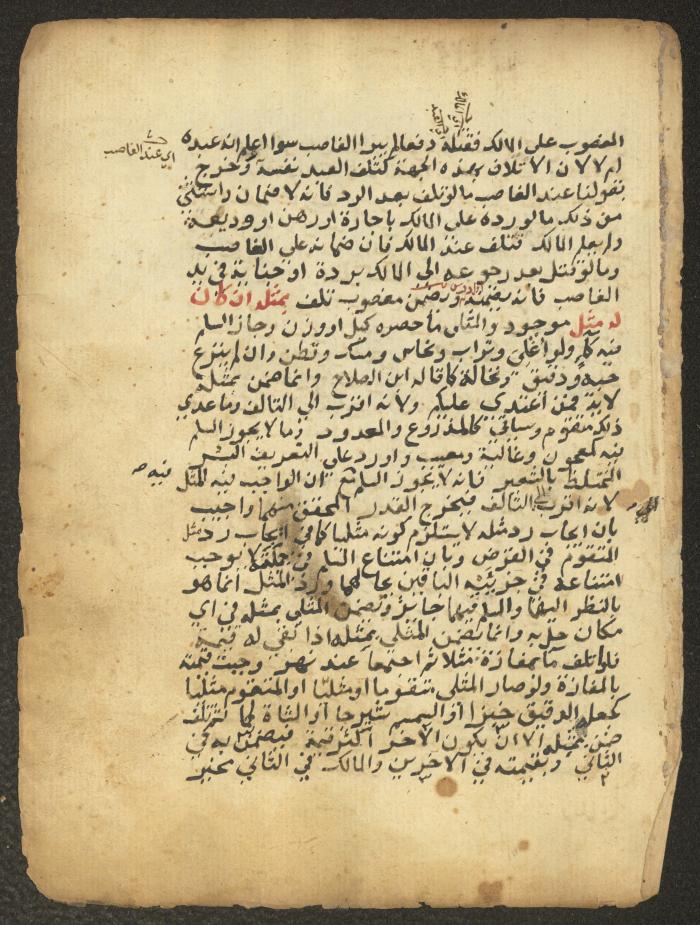 المغصوب على المالك فقتله دفعا لم يبرا الغاصب سوا اعلم انه عبده
ام لا لان الاتلاف بهذه الجهة كتلف العبد نفسه وخرج
بقولنا عند الغاصب ما لو تلف بعد الرد فانه لا ضمان واستثني
من ذلك ما لو رده على المالك باجارة او رهن او وديعة
ولم يعلم المالك فتلف عند المالك فان ضمانه على الغاصب
وما لو قتل بعد رجوعه الى المالك بردة او جناية في يد
الغاصب فانه يضمنه ويضمن مغصوب تلف بمثله ان كان
له مثل موجود والمثلي ما حصره كيل او وزن وجاز السلم
فيه كماء ولو اغلي وتراب ونحاس ومسك وقطن وان لم ينزع
حبه ودقيق ونخالة كما قاله ابن الصلاح وانما ضمن بمثله
لاية فمن اعتدى عليكم ولانه اقرب الى التالف وما عدي
ذلك متقوم وسياتي كالمذروع والمعدود وما لا يجوز السلم
فيه كمعجون وغالية ومعيب واورد على التعريف البر
المختلط بالشعير فانه لا يجوز السلم فيه مع ان الواجب فيه المثل
لانه اقرب الى التالف فيخرج القدر المحقق منهما واجيب
بان ايجاب رد مثله لا يستلزم كونه مثليا كما في ايجاب رد مثل
المتقوم في القرض وبان امتناع السلم في جملته لا يوجب
امتناعه في جزئيه الباقيين بحالهما ورد المثل انما هو
بالنظر اليهما والسلم فيهما جايز ويضمن المثلي بمثله في اي
مكان حل به وانما يضمن المثلي بمثله اذا بقي له قيمة
فلو اتلف ما بمفازة مثلا ثم اجتمعا عند نهر وجبت قيمته
بالمفازة ولو صار المثلي متقوما او مثليا او المتقوم مثليا
كجعل الدقيق خبزا او السمسم شيرجا او الشاة لحما ثم تلف
ضمن بمثله الا ان يكون الاخر اكثر قيمة فيضمن به في
الثاني وبقيمته في الاخرين والمالك في الثاني مخير
اي عند الغاصب